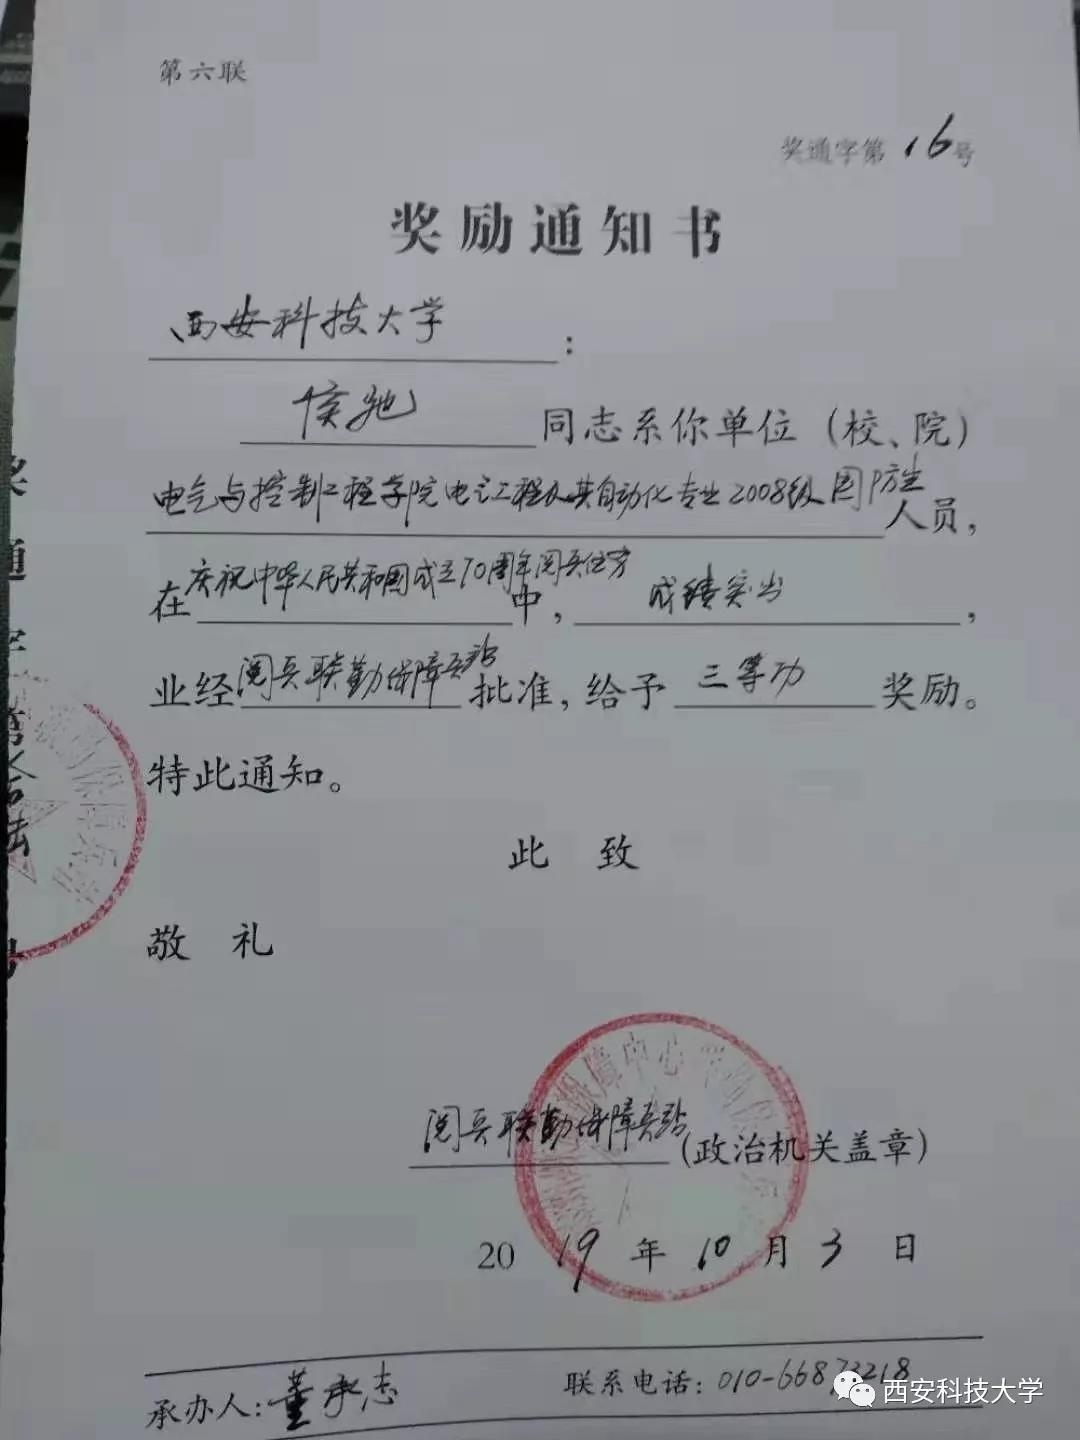 第六联
奖通字第16号
奖励通知书
西安科技大学:
侯弛同志系你单位(校、院)
电气与控制工程学院电气工程及其自动化专业2008级国防生人员,
在庆祝中华人民共和国成立70周年阅兵任务中,成绩突出,
业经阅兵联勤保障兵站批准,给予三等功奖励。
特此通知。
此 致
敬 礼
阅兵联勤保障兵站(政治机关盖章)
2019年10月3日
承办人:董承志
联系电话:010-66873218
西安科技大学